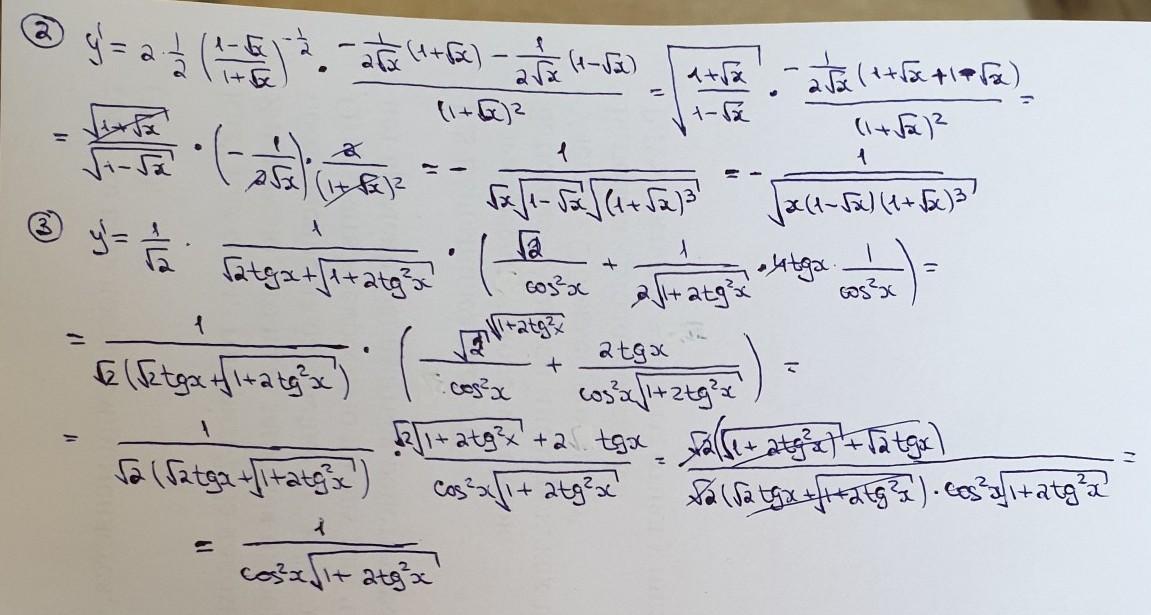 ② y' = 2·1/2 ((1-√x)/(1+√x))^(-1/2) · (-1/(2√x) (1+√x) - 1/(2√x) (1-√x))/((1+√x)²) = √((1+√x)/(1-√x)) · (-1/(2√x) (1+√x+1-√x))/((1+√x)²) =
= √(1+√x)/√(1-√x) · (-1/(2√x)) · 2/((1+√x)²) = - 1/(√x √(1-√x) √((1+√x)³)) = - 1/√(x(1-√x)(1+√x)³)
③ y' = 1/√2 · 1/(√2tgx+√(1+2tg²x)) · (√2/cos²x + 1/(2√(1+2tg²x)) · 4tgx · 1/cos²x) =
= 1/(√2(√2tgx+√(1+2tg²x))) · (√2^√(1+2tg²x)/cos²x + 2tgx/(cos²x√(1+2tg²x))) =
= 1/(√2(√2tgx+√(1+2tg²x))) · (√2√(1+2tg²x) + 2 tgx)/(cos²x√(1+2tg²x)) = √2(√(1+2tg²x)+√2tgx)/(√2(√2tgx+√(1+2tg²x))·cos²x√(1+2tg²x)) =
= 1/(cos²x√(1+2tg²x))